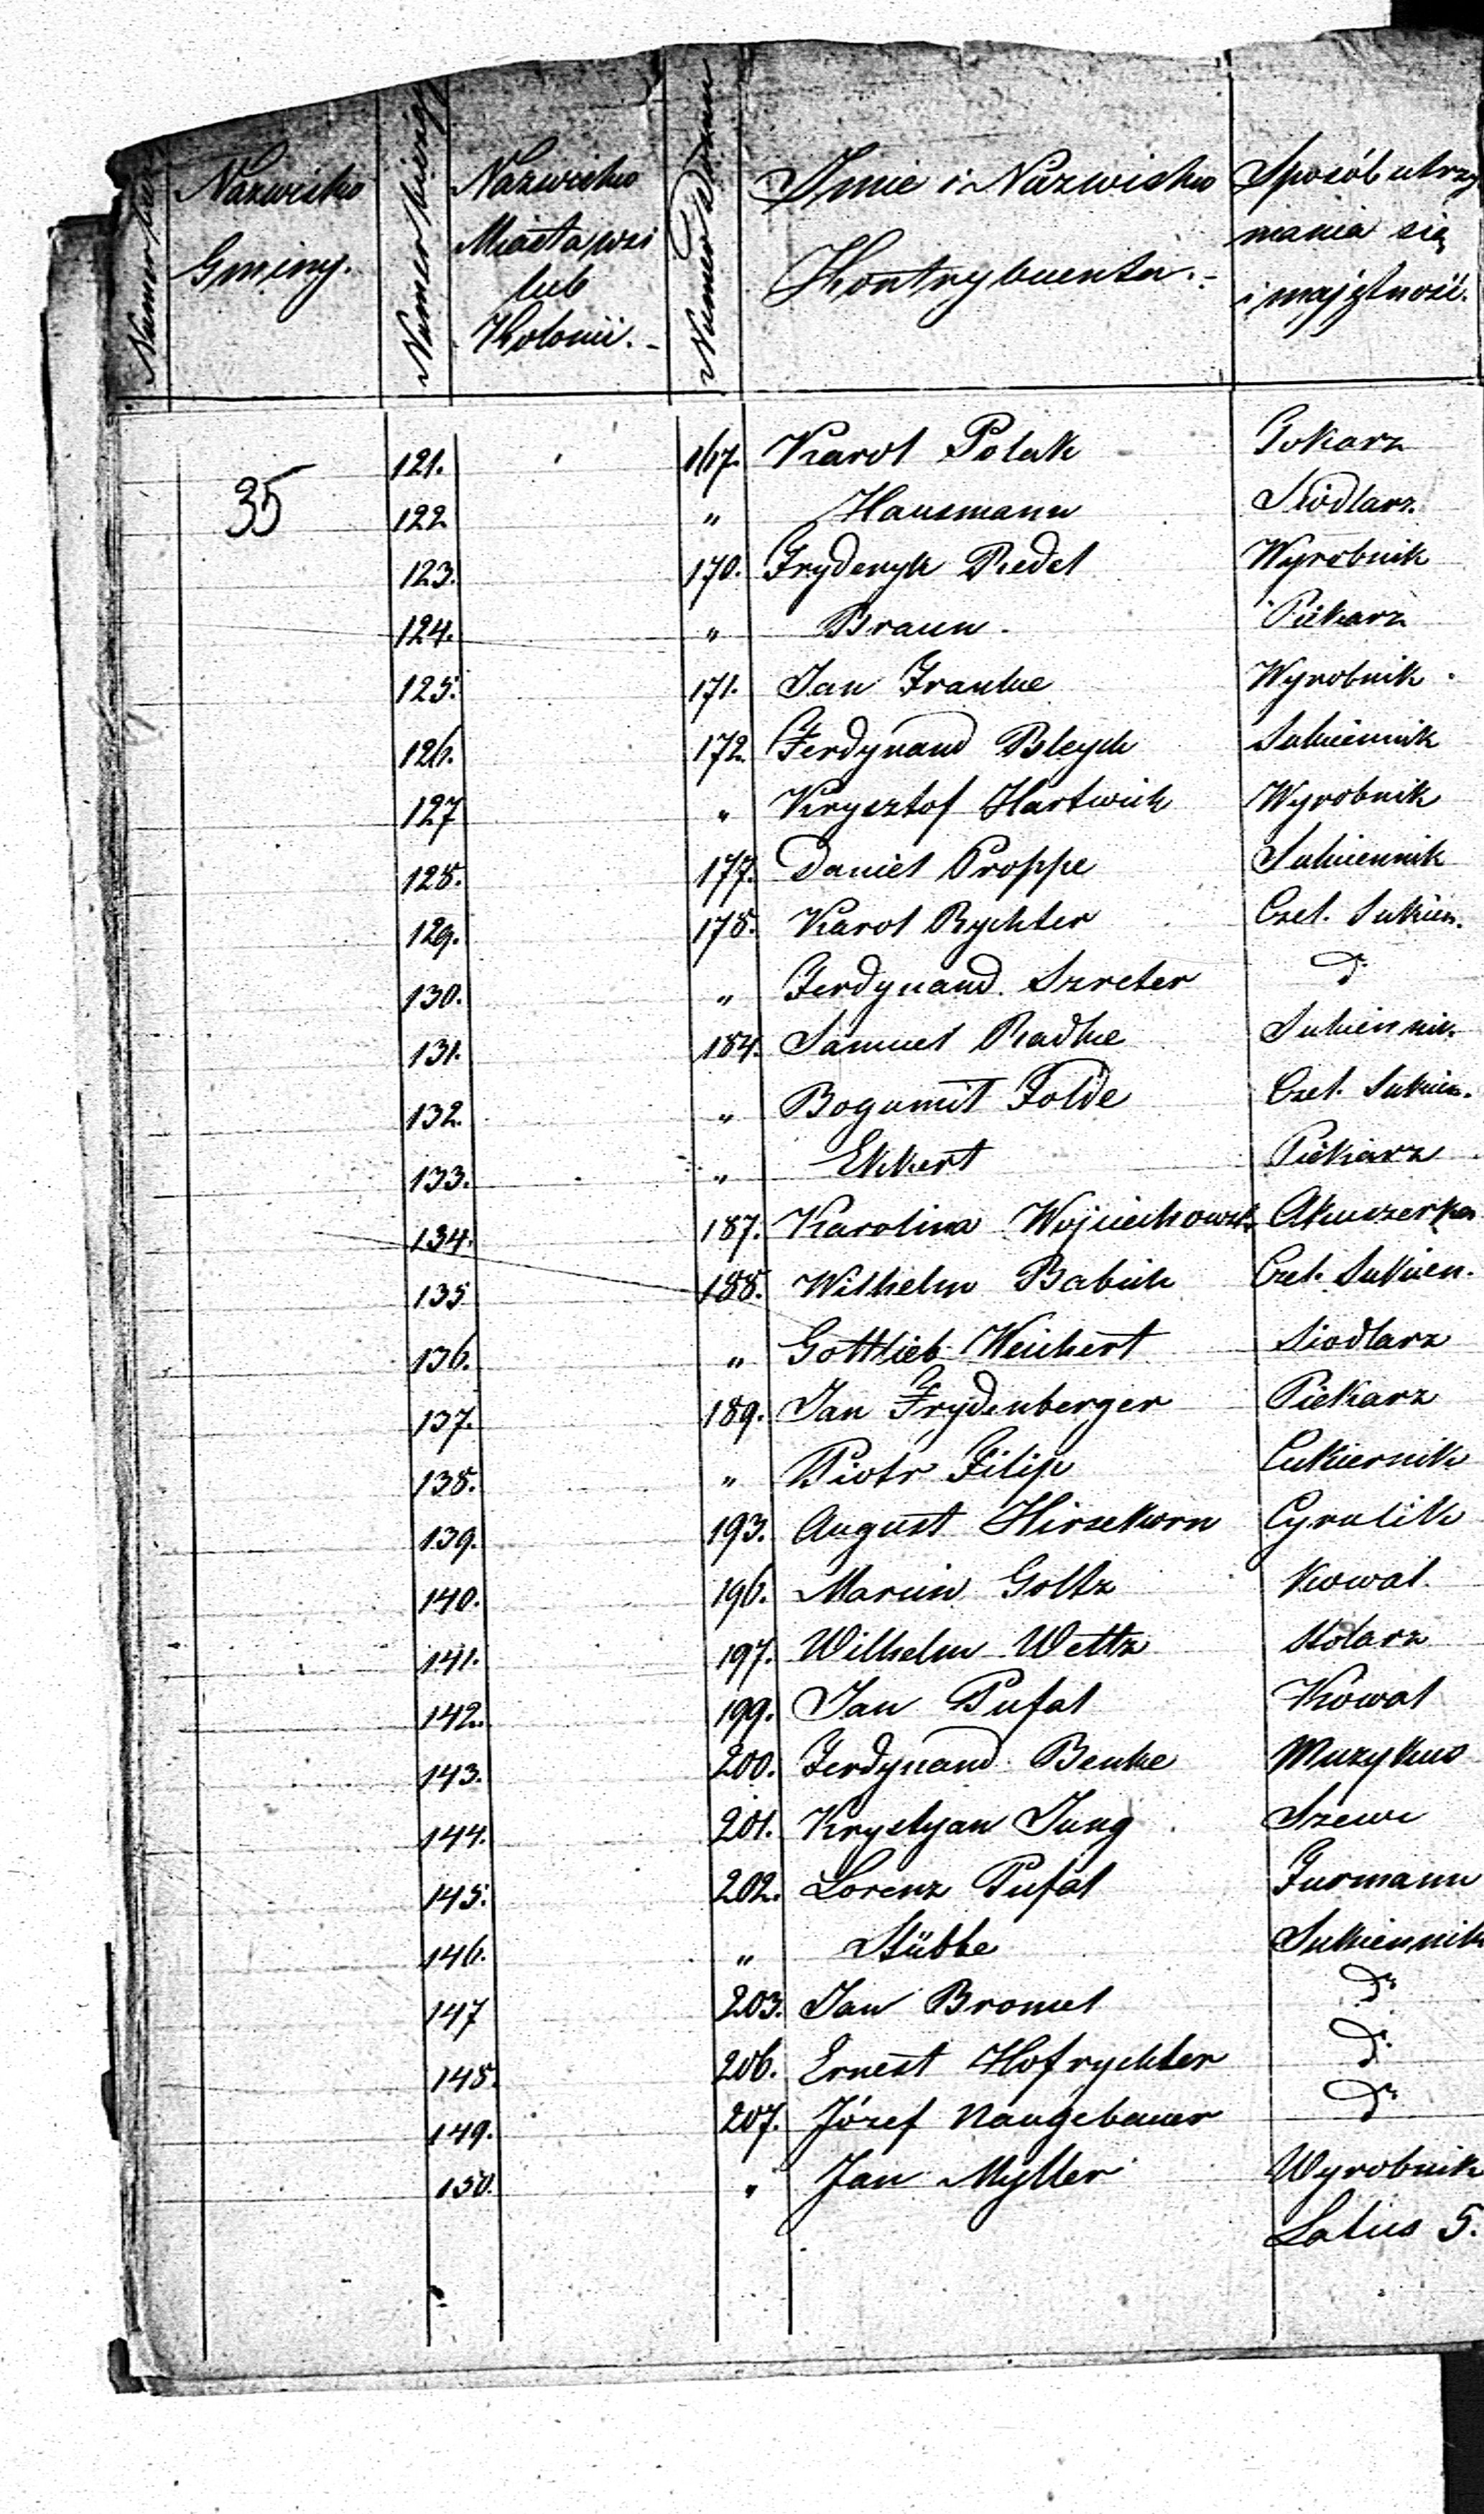 Numer bież
Nazwisko Gminy.
Numer bieżący
Nazwisko Miasta, wsi lub Kolonii.-
Numer Domu
Imie i Nazwisko Kontrybuenta.-
Sposób utrzymania się i majętność.
35
121. 167. Karol Polak Tokarz
122 " Hausmann Siodlarz
123. 170. Fryderyk Redel Wyrobnik
124. " Braun. Piekarz
125. 171. Jan Franke Wyrobnik
126. 172. Ferdynand Bleych Sukiennik
127 " Krysztof Hartwich Wyrobnik
128. 177. Daniel Proppe Sukiennik
129. 178. Karol Rychter Czel. Sukien.
130. " Ferdynand Szreter do
131. 184. Samuel Radke Sukiennik
132. " Bogumił Folde Czel. Sukien.
133. " Ekkert Piekarz
134. 187. Karolina Wojciechowsk Akuszerka
135 188. Wilhelm Babich Czel. Sukien.
136. " Gottlieb Weichert Siodlarz
137. 189. Jan Frydenberger Piekarz
138. " Piotr Filip Cukiernik
139. 193. August Hirsekorn Cyrulik
140. 196. Marcin Goltz Kowal.
141. 197. Wilhelm Weltz Stolarz
142. 199. Jan Pufal Kowal
143. 200. Ferdynand Benke Muzykus
144. 201. Krystyan Jung Szewc
145. 202. Lorenz Pufal Furmann
146. " Stübbe Sukiennik
147 203. Jan Bromel do
148. 206. Ernest Hofrychter do
149. 207. Józef Naugebauer do
150. " Jan Myller Wyrobnik
Latus 5.